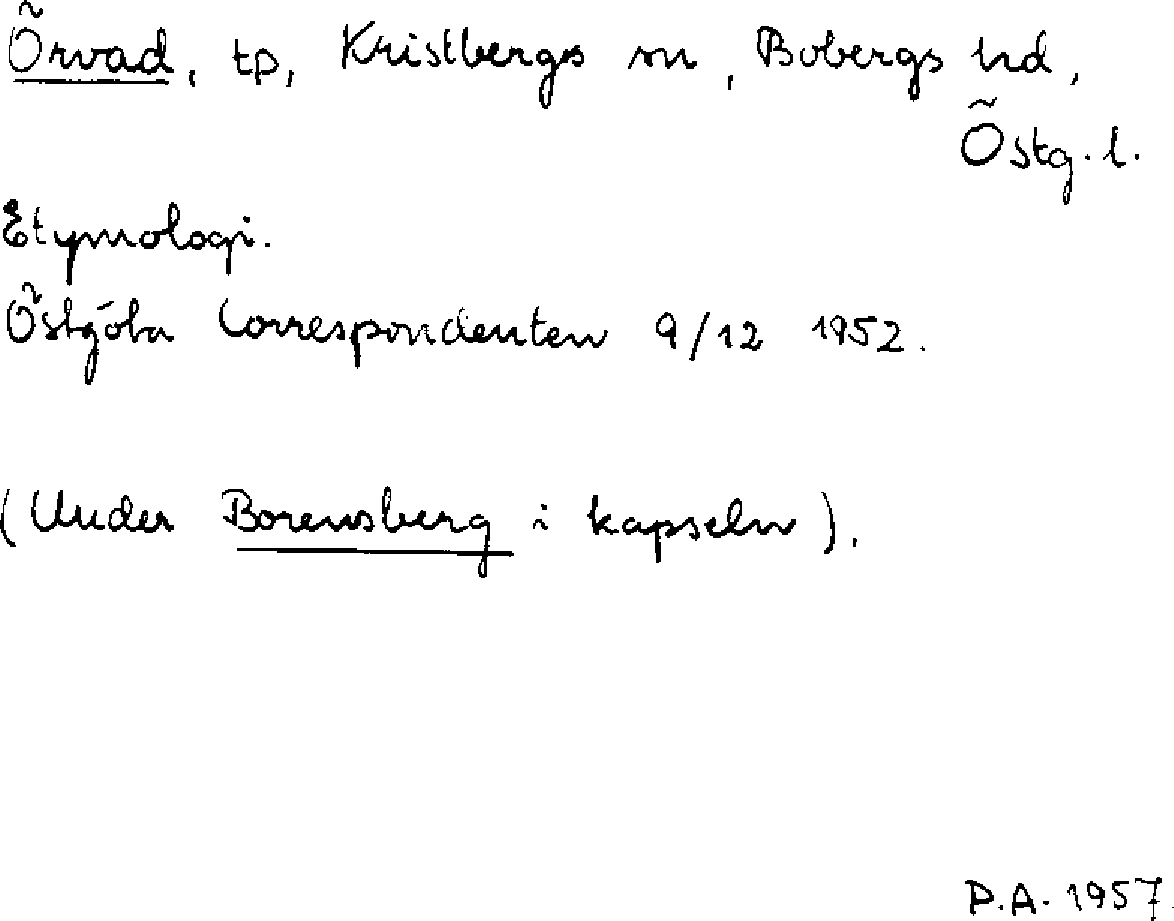 Örvad, tp, Kristbergs sn, Bobergs hd,
Östg. l.
Etymologi.
Östgöta Correspondenten 9/12 1952.
(Under Borensberg i kapseln).
P.A. 1957